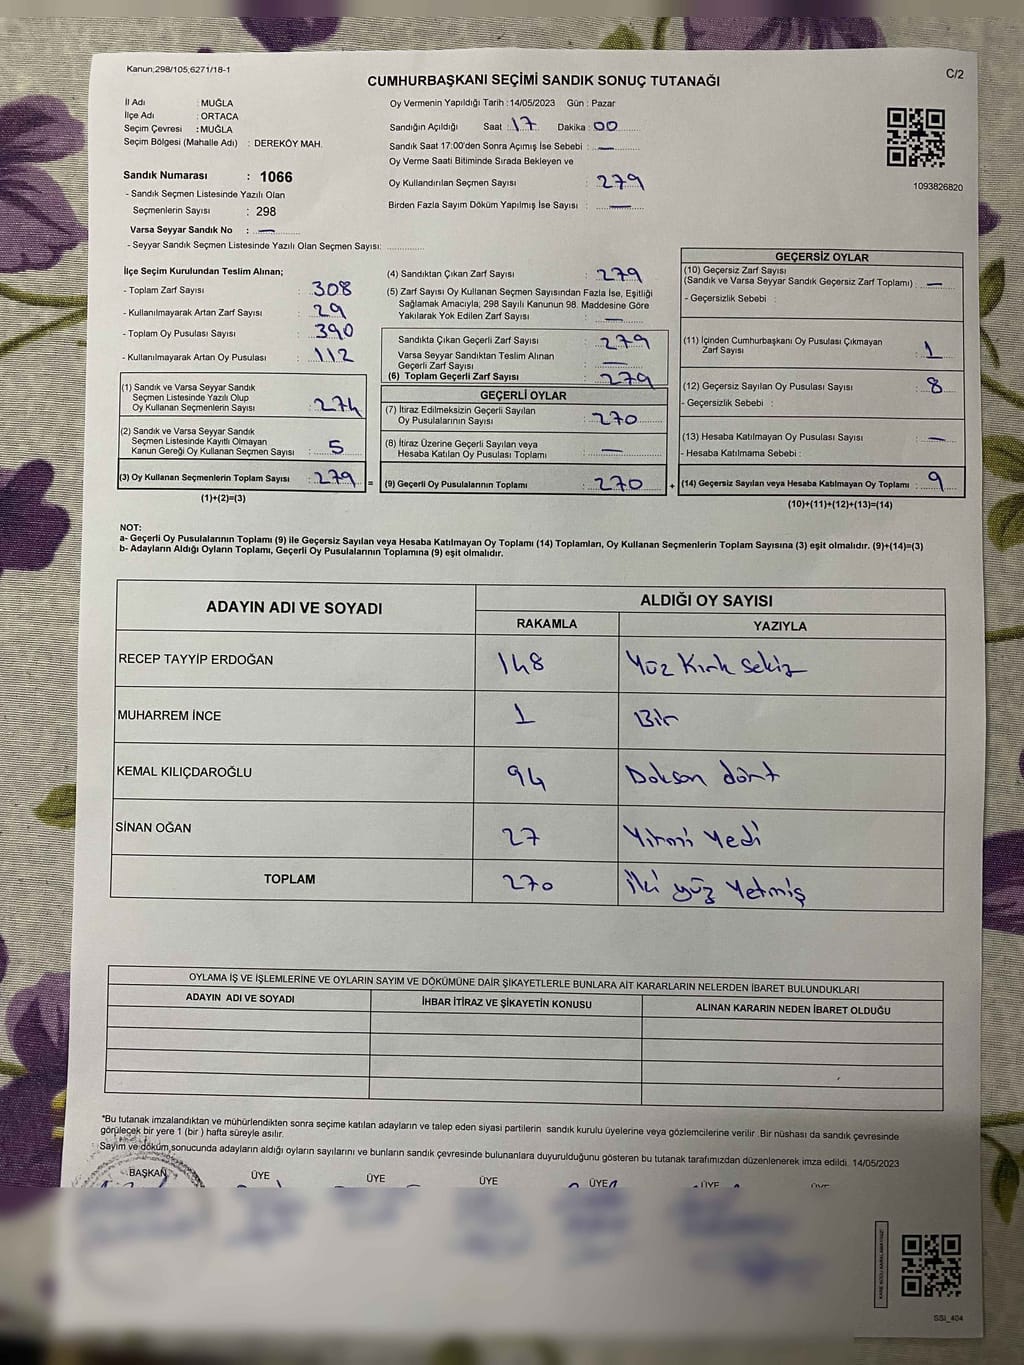 Kanun;298/105;6271/18-1
C/2
CUMHURBAŞKANI SEÇİMİ SANDIK SONUÇ TUTANAĞI
İl Adı : MUĞLA
İlçe Adı : ORTACA
Seçim Çevresi : MUĞLA
Seçim Bölgesi (Mahalle Adı) : DEREKÖY MAH.
Oy Vermenin Yapıldığı Tarih : 14/05/2023 Gün : Pazar
Sandığın Açıldığı Saat : 17 Dakika : 00
Sandık Saat 17:00'den Sonra Açımış İse Sebebi : —
Oy Verme Saati Bitiminde Sırada Bekleyen ve
Oy Kullandırılan Seçmen Sayısı : 279
Birden Fazla Sayım Döküm Yapılmış İse Sayısı : —
1093826820
Sandık Numarası : 1066
- Sandık Seçmen Listesinde Yazılı Olan
Seçmenlerin Sayısı : 298
Varsa Seyyar Sandık No : —
- Seyyar Sandık Seçmen Listesinde Yazılı Olan Seçmen Sayısı: ..............
İlçe Seçim Kurulundan Teslim Alınan;
- Toplam Zarf Sayısı : 308
- Kullanılmayarak Artan Zarf Sayısı : 29
- Toplam Oy Pusulası Sayısı : 390
- Kullanılmayarak Artan Oy Pusulası : 112
(1) Sandık ve Varsa Seyyar Sandık
Seçmen Listesinde Yazılı Olup
Oy Kullanan Seçmenlerin Sayısı : 274
(2) Sandık ve Varsa Seyyar Sandık
Seçmen Listesinde Kayıtlı Olmayan
Kanun Gereği Oy Kullanan Seçmen Sayısı : 5
(3) Oy Kullanan Seçmenlerin Toplam Sayısı : 279 =
(1)+(2)=(3)
(4) Sandıktan Çıkan Zarf Sayısı : 279
(5) Zarf Sayısı Oy Kullanan Seçmen Sayısından Fazla İse, Eşitliği
Sağlamak Amacıyla; 298 Sayılı Kanunun 98. Maddesine Göre
Yakılarak Yok Edilen Zarf Sayısı : —
Sandıkta Çıkan Geçerli Zarf Sayısı : 279
Varsa Seyyar Sandıktan Teslim Alınan
Geçerli Zarf Sayısı : —
(6) Toplam Geçerli Zarf Sayısı : 279
GEÇERLİ OYLAR
(7) İtiraz Edilmeksizin Geçerli Sayılan
Oy Pusulalarının Sayısı : 270
(8) İtiraz Üzerine Geçerli Sayılan veya
Hesaba Katılan Oy Pusulası Toplamı : —
(9) Geçerli Oy Pusulalarının Toplamı : 270 +
GEÇERSİZ OYLAR
(10) Geçersiz Zarf Sayısı
(Sandık ve Varsa Seyyar Sandık Geçersiz Zarf Toplamı) : —
- Geçersizlik Sebebi :
(11) İçinden Cumhurbaşkanı Oy Pusulası Çıkmayan
Zarf Sayısı : 1
(12) Geçersiz Sayılan Oy Pusulası Sayısı : 8
- Geçersizlik Sebebi :
(13) Hesaba Katılmayan Oy Pusulası Sayısı : —
- Hesaba Katılmama Sebebi :
(14) Geçersiz Sayılan veya Hesaba Katılmayan Oy Toplamı : 9
(10)+(11)+(12)+(13)=(14)
NOT:
a- Geçerli Oy Pusulalarının Toplamı (9) ile Geçersiz Sayılan veya Hesaba Katılmayan Oy Toplamı (14) Toplamları, Oy Kullanan Seçmenlerin Toplam Sayısına (3) eşit olmalıdır. (9)+(14)=(3)
b- Adayların Aldığı Oyların Toplamı, Geçerli Oy Pusulalarının Toplamına (9) eşit olmalıdır.
ADAYIN ADI VE SOYADI
ALDIĞI OY SAYISI
RAKAMLA YAZIYLA
RECEP TAYYİP ERDOĞAN 148 Yüz Kırk Sekiz
MUHARREM İNCE 1 Bir
KEMAL KILIÇDAROĞLU 94 Doksan dört
SİNAN OĞAN 27 Yirmi Yedi
TOPLAM 270 İki yüz Yetmiş
OYLAMA İŞ VE İŞLEMLERİNE VE OYLARIN SAYIM VE DÖKÜMÜNE DAİR ŞİKAYETLERLE BUNLARA AİT KARARLARIN NELERDEN İBARET BULUNDUKLARI
ADAYIN ADI VE SOYADI İHBAR İTİRAZ VE ŞİKAYETİN KONUSU ALINAN KARARIN NEDEN İBARET OLDUĞU
*Bu tutanak imzalandıktan ve mühürlendikten sonra seçime katılan adayların ve talep eden siyasi partilerin sandık kurulu üyelerine veya gözlemcilerine verilir. Bir nüshası da sandık çevresinde
görülecek bir yere 1 (bir) hafta süreyle asılır.
Sayım ve döküm sonucunda adayların aldığı oyların sayılarını ve bunların sandık çevresinde bulunanlara duyurulduğunu gösteren bu tutanak tarafımızdan düzenlenerek imza edildi. 14/05/2023
BAŞKAN ÜYE ÜYE ÜYE ÜYE ÜYE ÜYE
SSI_404